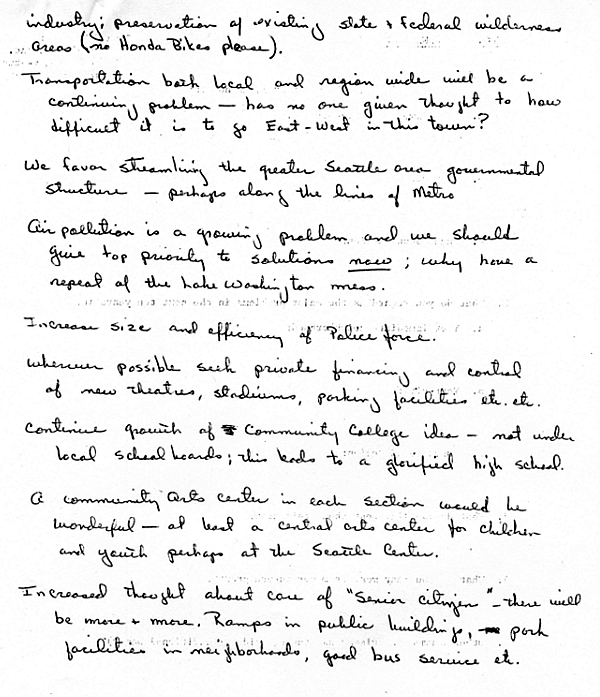 industry; preservation of existing state + federal wilderness
areas (no Honda Bikes please).
Transportation both local and region wide will be a
continuing problem — has no one given thought to how
difficult it is to go East-West in this town?
We favor streamling the greater Seattle area governmental
structure — perhaps along the lines of Metro
Air pollution is a growing problem and we should
give top priority to solutions now; why have a
repeat of the Lake Washington mess.
Increase size and efficiency of Police force.
Wherever possible seek private financing and control
of new theatres, stadiums, parking facilities etc. etc.
Continue growth of Community College idea — not under
local school boards; this leads to a glorified high school.
A community arts center in each section would be
wonderful — at least a central arts center for children
and youth perhaps at the Seattle Center.
Increased thought about care of "Senior Citizen" — there will
be more + more. Ramps in public buildings, park
facilities in neighborhoods, good bus service etc.